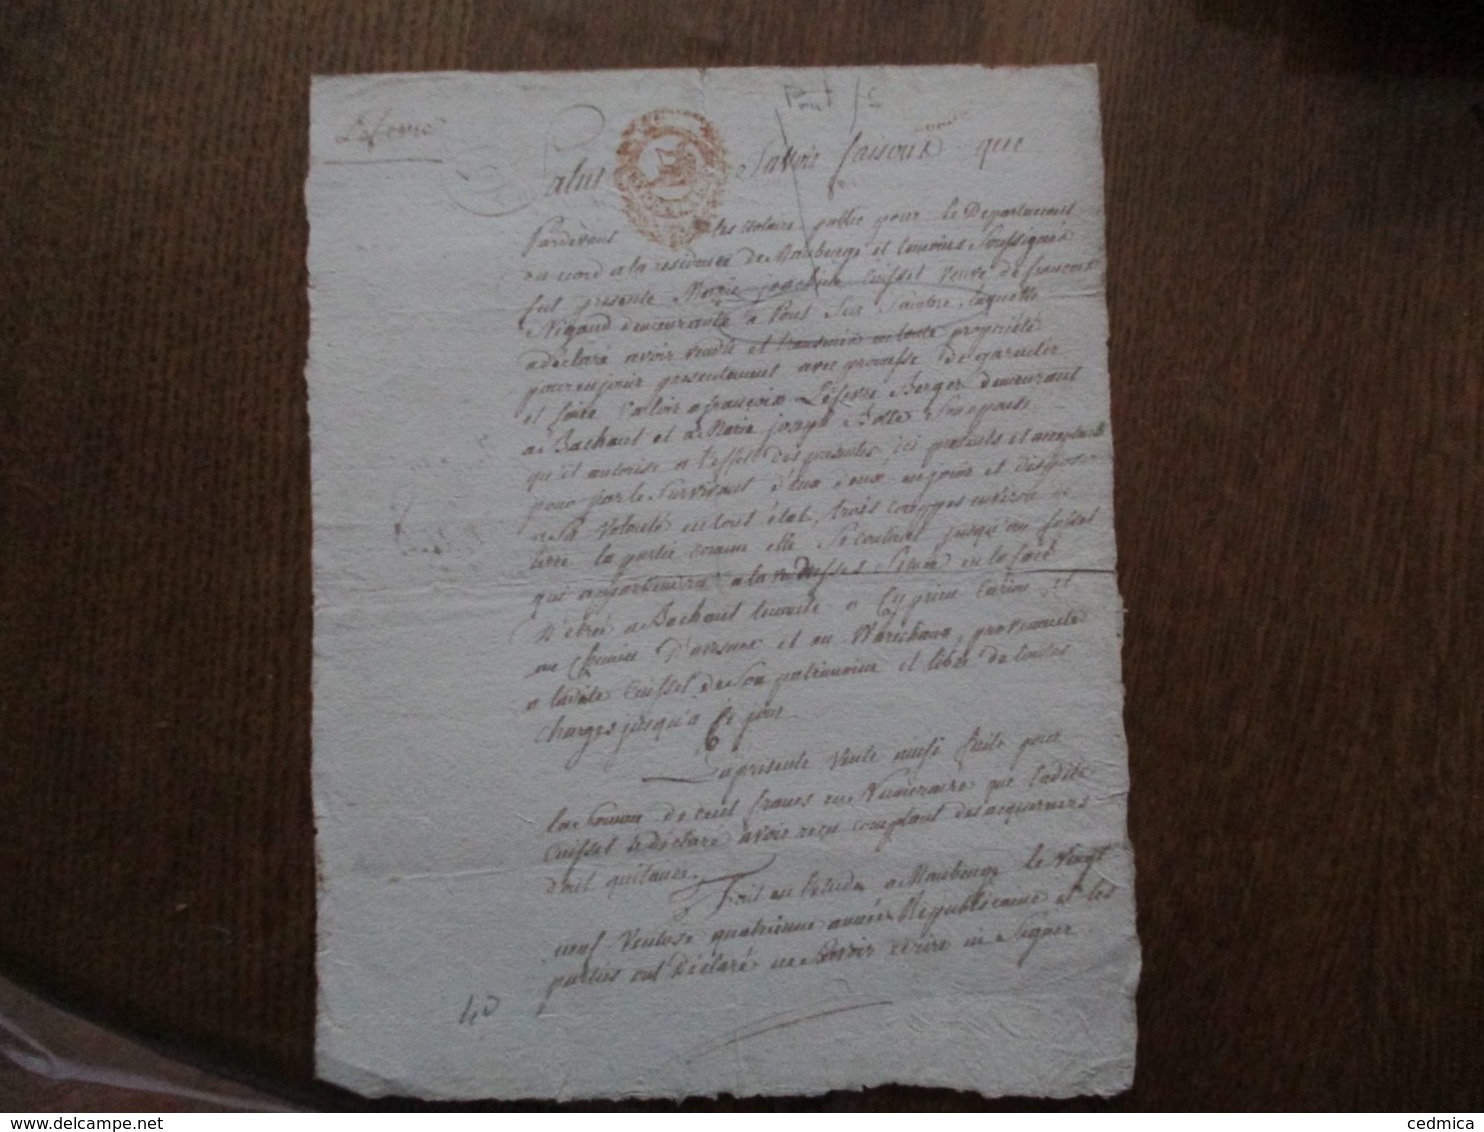 Lefevre
Pont /S
Salut Savoir faisons que
Pardevant les Notaire public pour le Departement
du nord a la residence de Maubeuge et temoins Soussignés
fut presente Marie joachine Cuissel veuve de francois
Nigaud demeurante a Pont Sur Sambre, laquelle
a déclaré avoir vendu et transmis en toute propriété
pour en jouir presentement avec promesse de garantir
et faire valoir a françois Lefevre Berger demeurant
a Bachant et a Marie joseph Botte Son epouse
qu'il autorise a l'effet des presentes, ici presents et acceptans
pour par le Survivant d'eux deux en jouir et disposer
a Sa volonté en tout état, trois environ
tirée la partie comme elle Se contient jusqu'au fossel
qui appartenera a la Située en la
a Bachant tenante a Cyprien et
au chemin d'avesnes et au Warechaux, provenante
a ladite Cuissel de Son patrimoine et libre de toutes
charges jusqu'a Ce jour
La presente vente ainsi faite pour
la Somme de cent francs en Numeraire que ladite
Cuissel a déclaré avoir reçu comptant des acquereurs
dont quitance.
Fait en l'etude a Maubeuge le vingt
neuf Ventose quatrieme année Republicaine et les
parties ont Déclaré ne Savoir écrire ni Signer
40
cedmica